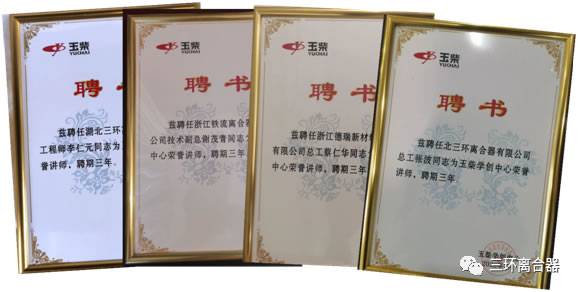 玉柴
YUCHAI
聘书
兹聘任湖北三环
工程师李仁元同志为
誉讲师，聘期三年。
玉柴
YUCHAI
聘书
兹聘任浙江铁流离合器
公司技术副总谢茂青同志
中心荣誉讲师，聘期三年
玉柴
YUCHAI
聘书
兹聘任浙江德瑞新材
有限公司总工蔡仁华同志为
中心荣誉讲师，聘期三年
玉柴
YUCHAI
聘书
兹聘任北三环离合器有限公司
总工张波同志为玉柴学创中心荣誉
讲师，聘期三年
玉柴学创
三环离合器